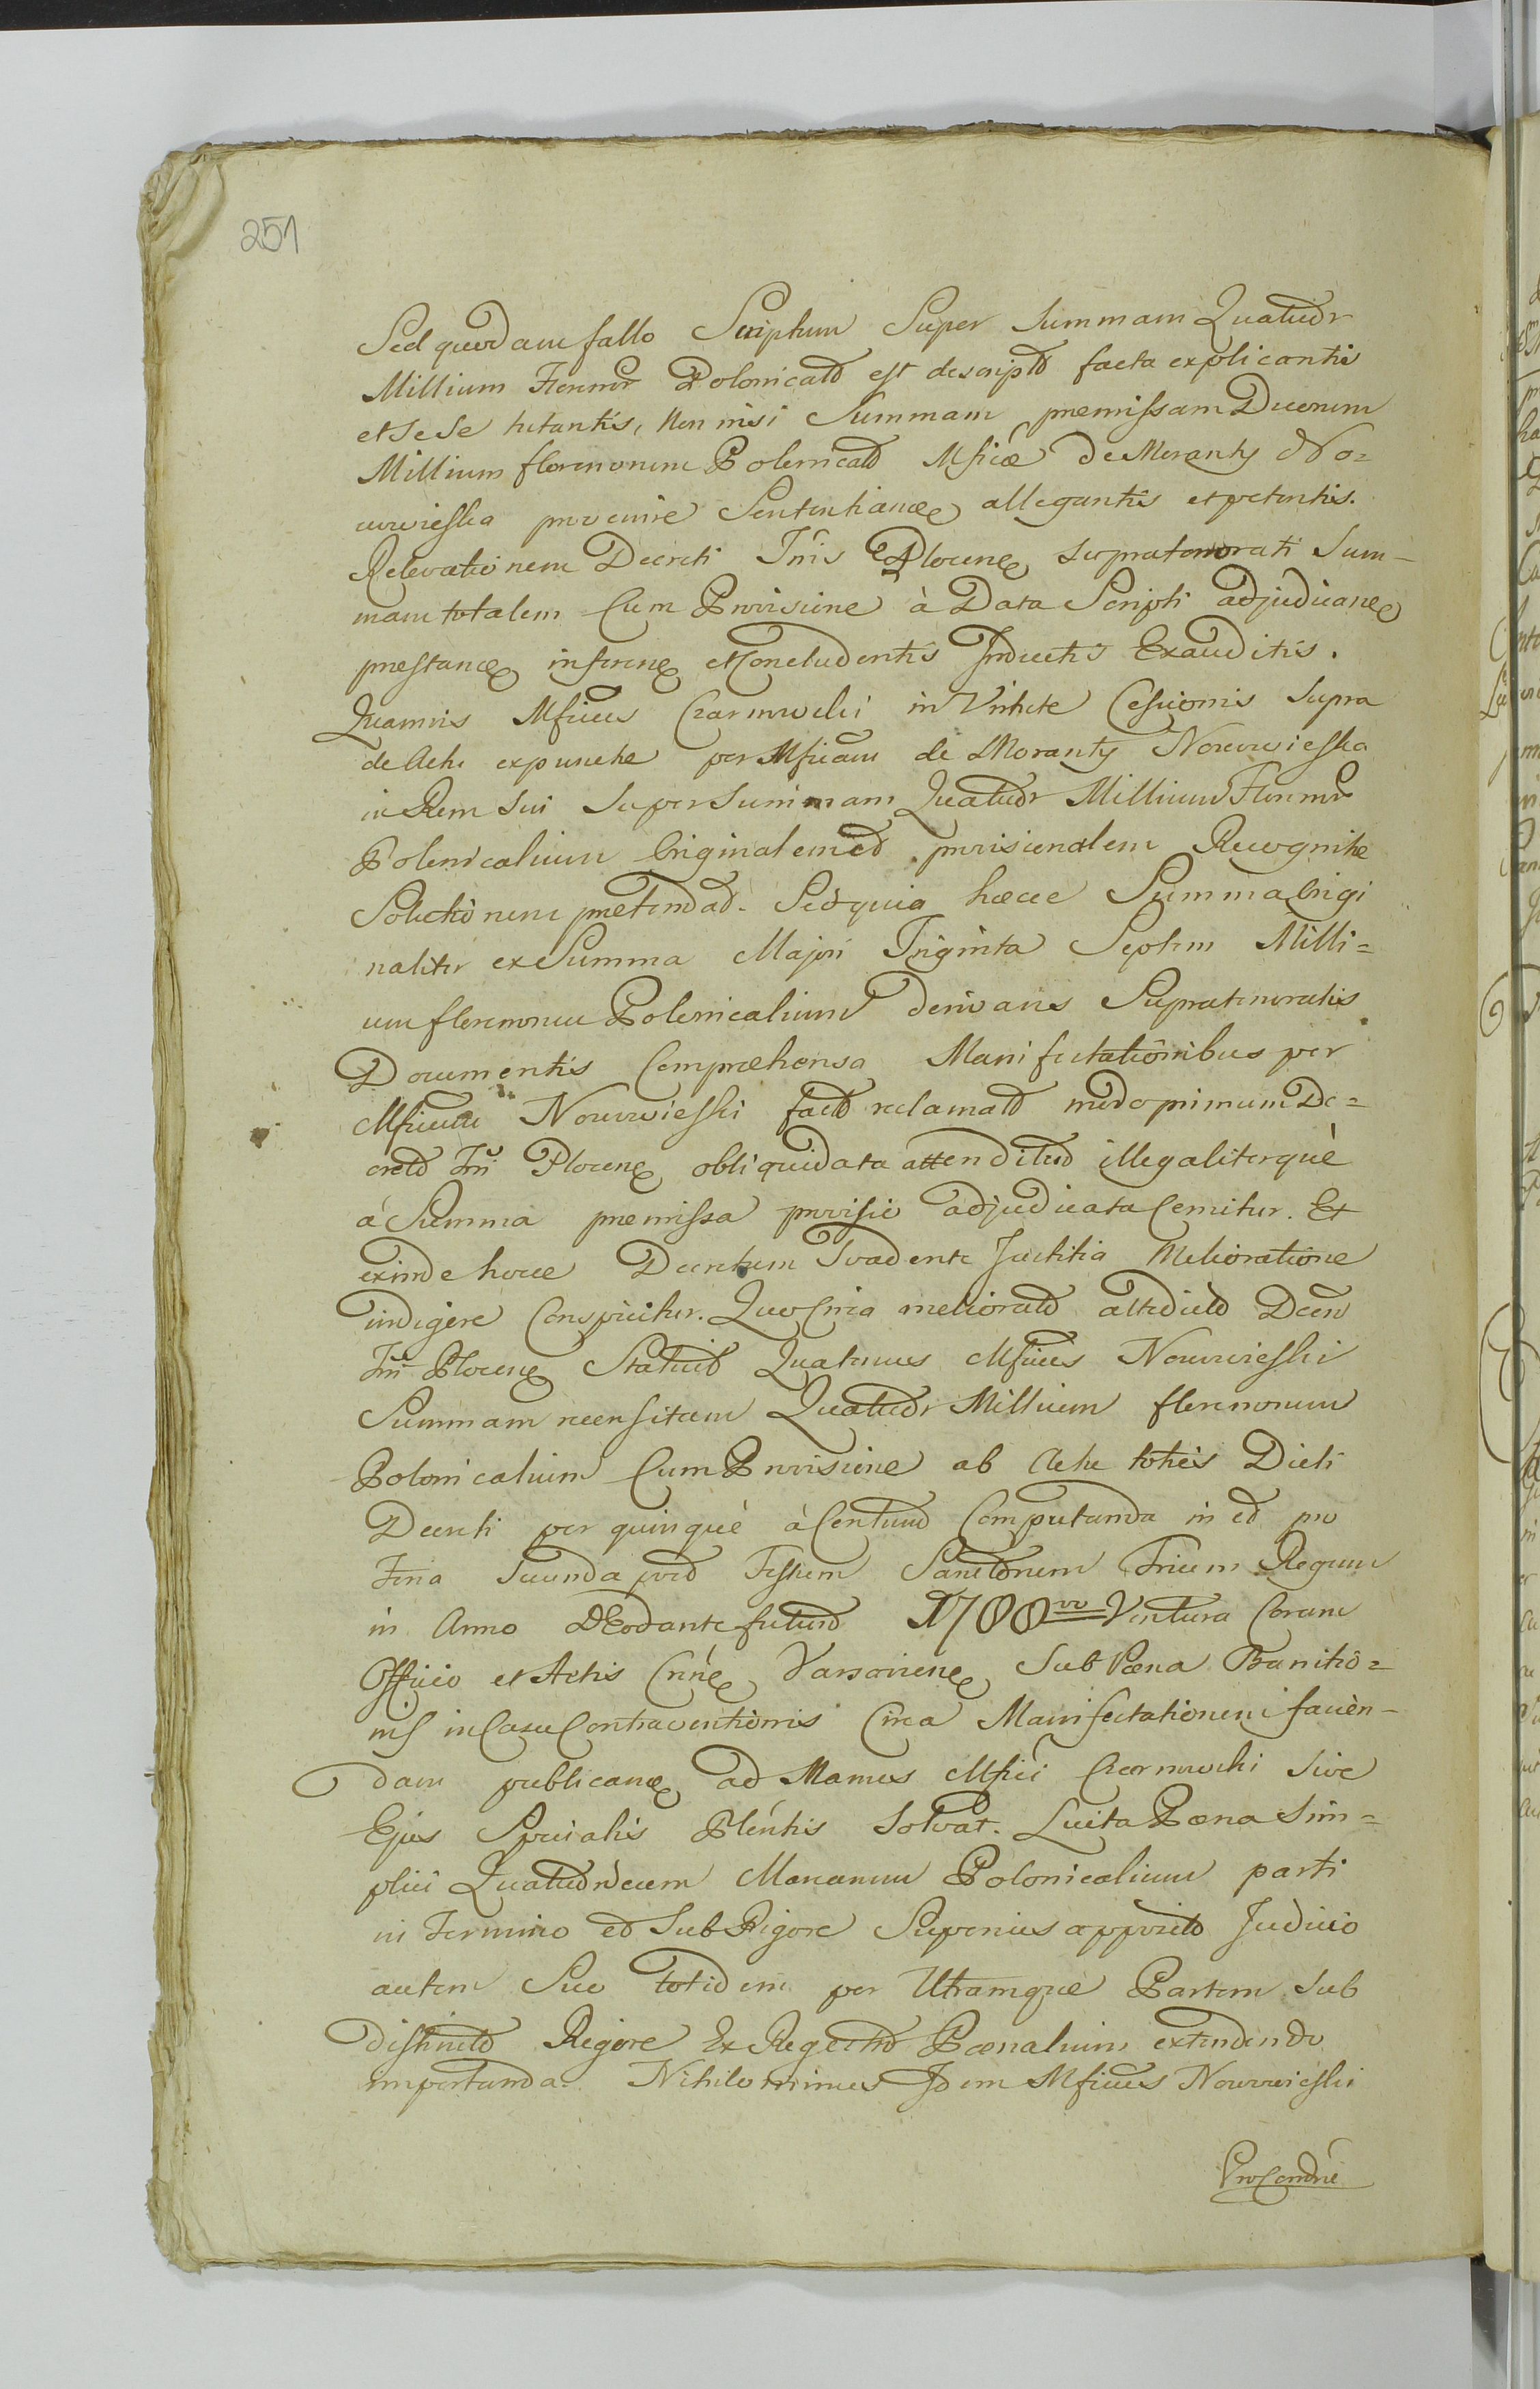 251
Sed quodam fallo Scriptum Super Summam Quatuor
Millium Florenor Polonicald est descripto facta explicantis
et Se Se tutantis, Non nisi Summam premissam Duorum
Millium florenorum Polonicald Mficæ De Moranty No=
wowieska provenire Sententiane allegantis et petentis.
Relevationem Decreti Tris Plocens Supratenorati Sum-
mam totalem Cum Provisione à Data Scripti adjudicane
prestane inferens et Concludentis Inductis Exauditis.
Quamvis Mficus Czarnowski in Virtute Cessionis Supra
de Actu expuncte per Mficam de Moranty Nowowieska
in Rem Sui Super Summam Quatuor Millium Florenor
Polonicalium Originalem ed provisionalem Recognite
Solutionem pretendad. Sed quia hæce Summa Origi
naliter ex Summa Majori Triginta Septem Milli=
um florenorum Polonicalium derivans Supratenoratis
Documentis Compræhensa Manifestationibus per
Mficum Nowowieski facto reclamato modo primum De=
creto Trii Plocens obliquidata attenditur illegaliterquè
á Summa premissa provisio adjudicata Cernitur. Et
exinde hocce Decretum Svadente Justitia Melioratione
indigere Conspicitur. Quo Circa meliorato attedicto Dcen
Trii Plocens Statuit Quatenus Mficus Nowowieski
Summam recensitam Quatuor Millium florenorum
Polonicalium Cum Provisione ab Actu toties Dicti
Decreti per quinquè à Centum Computanda in ed pro
Feria Secunda post Festum Sanctorum Trium Regum
in Anno DEo dante futuro 1788vo Ventura Coram
Officio et Actis Crine Varsaviens Sub Pæna Banitio=
nis in Casu Contraventionis Circa Manifestationem facièn-
dam publicane ad Manus Mfici Czarnowski Sive
Ejus Specialis Plentis Solvat. Luita Pæna Sim=
plici Quatuordecem Marcarum Polonicalium parti
in Termino ed Sub Rigore Superius apposito Judicio
autem Suo totidem per Utramque Partem Sub
distincto Rigore Ex Regestro Pænalium extendendo
importanda. Nihilominus Idem Mficus Nowowieski